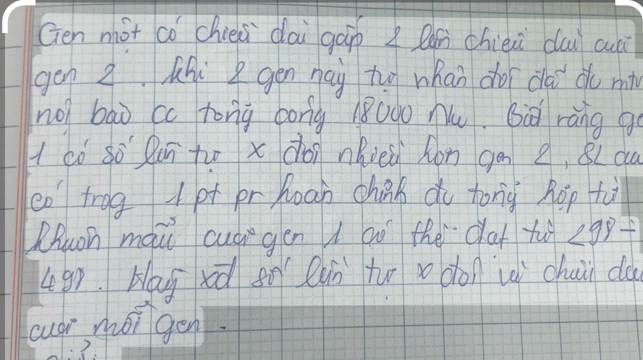 Gen một có chiều dài gấp 2 lần chiều dài của
gen 2. Khi 2 gen này tự nhân đôi đã đc mtr
nội bào cc tổng cộng 18000 Nu. Biết rằng ge
1 có số lần tự x đôi nhiều hơn gen 2, SL aa
có trog 1 pt pr hoàn chỉnh đc tổng hợp từ
khuôn mẫu của gen 1 có thể đạt từ 298 -
498. Hãy xđ số lần tự x đôi và chiều dài
của mỗi gen.